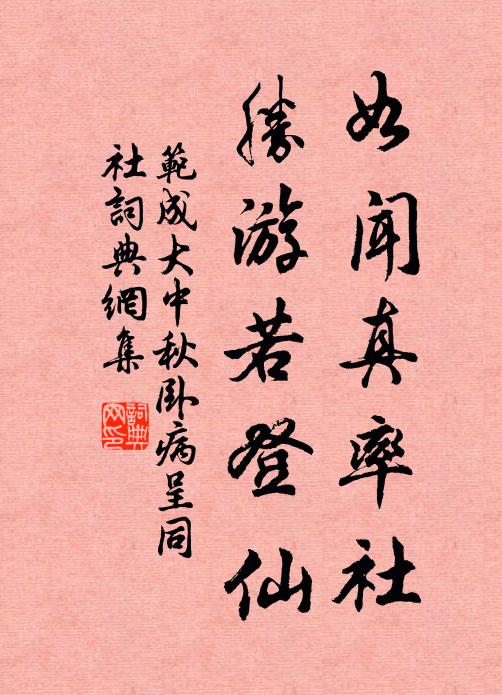 如闻真率社
勝游若登仙
範成大中秋卧病呈同
社詞典網集
詞典
网印